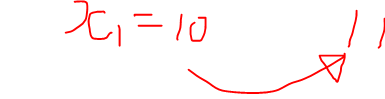 x₁ = 10 11